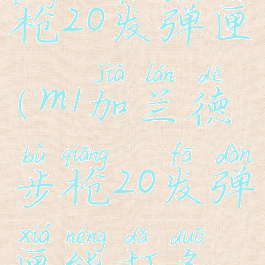 枪20发弹匣
jiā lán dé
(m1加兰德
bù qiāng fā dàn
步枪20发弹
xiá néng dǎ duō
匣能打多